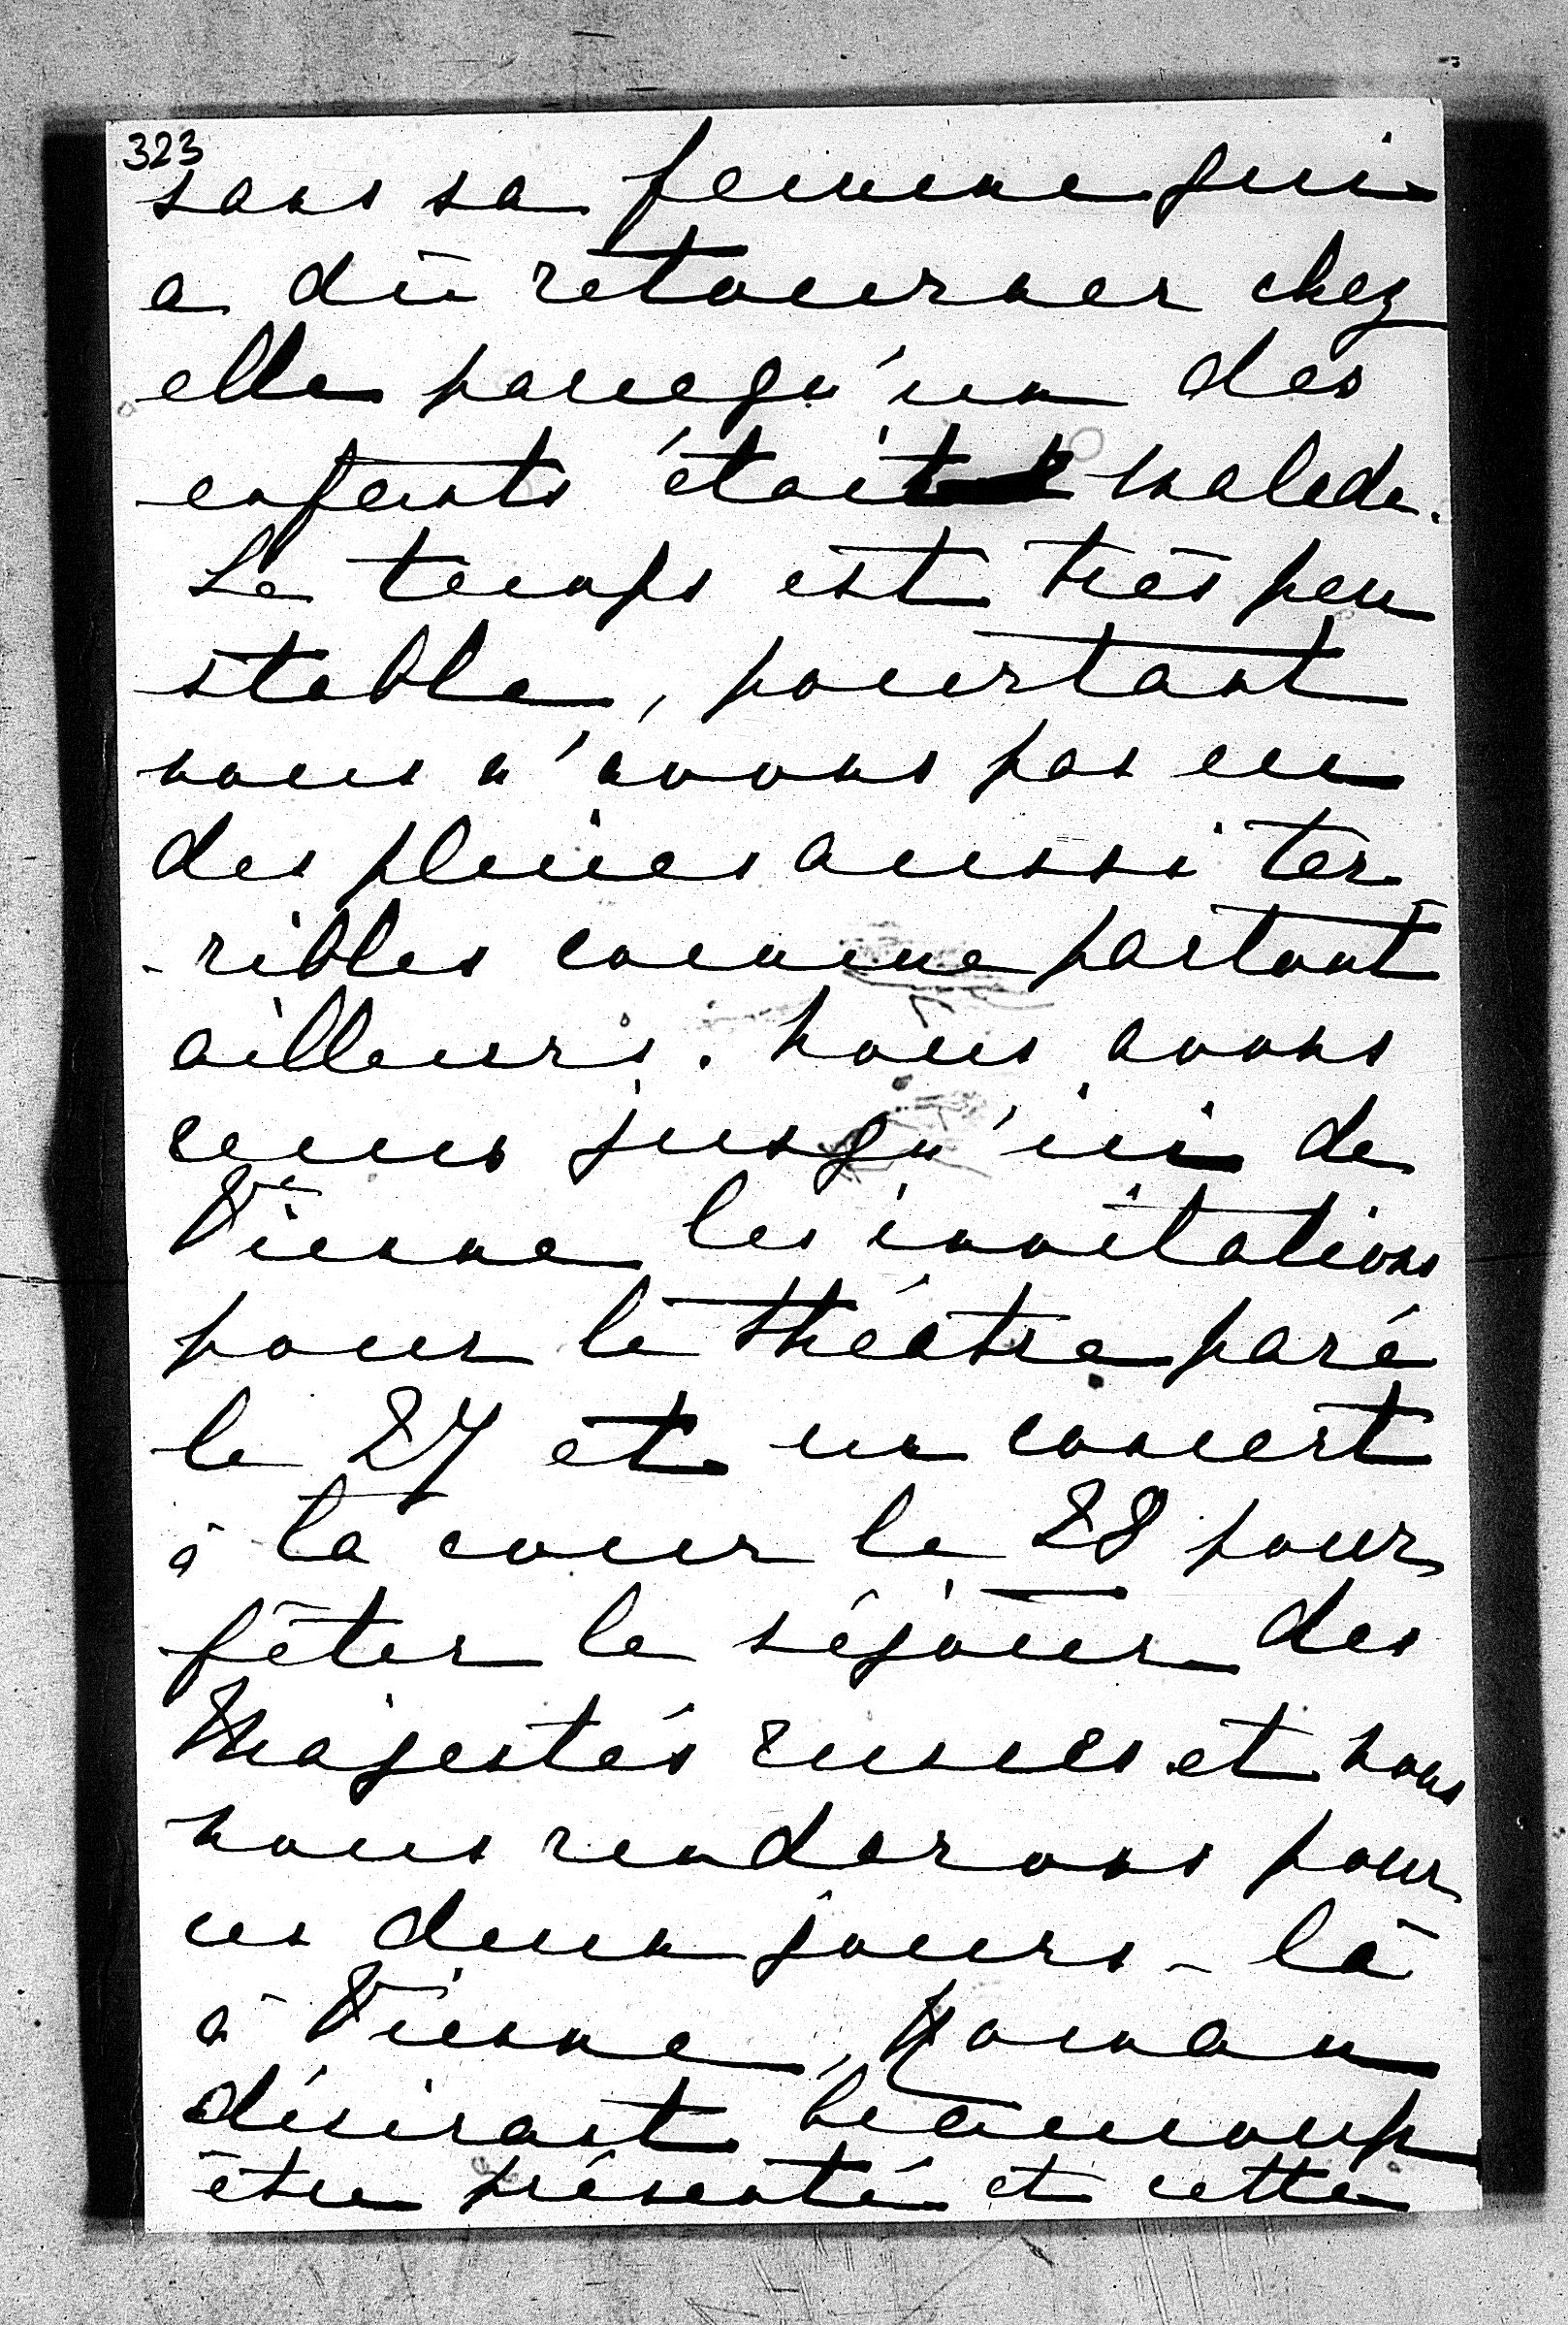 323
sans sa femme qui
a dû retourner chez
elle parcequ'un des
enfants était malade.
Le temps est très peu
stable, pourtant
nous n'avons pas eu
des pluies aussi ter
-ribles comme partout
ailleurs. Nous avons
reçus jusqu'ici de
Vienne les invitations
pour le théâtre paré
le 27 et un concert
à la cour le 28 pour
fêter le séjour des
Majestés russes et nous
nous renderons pour
ces deux jours-là
à Vienne, Roman
désirant beaucoup
être présenté et cette